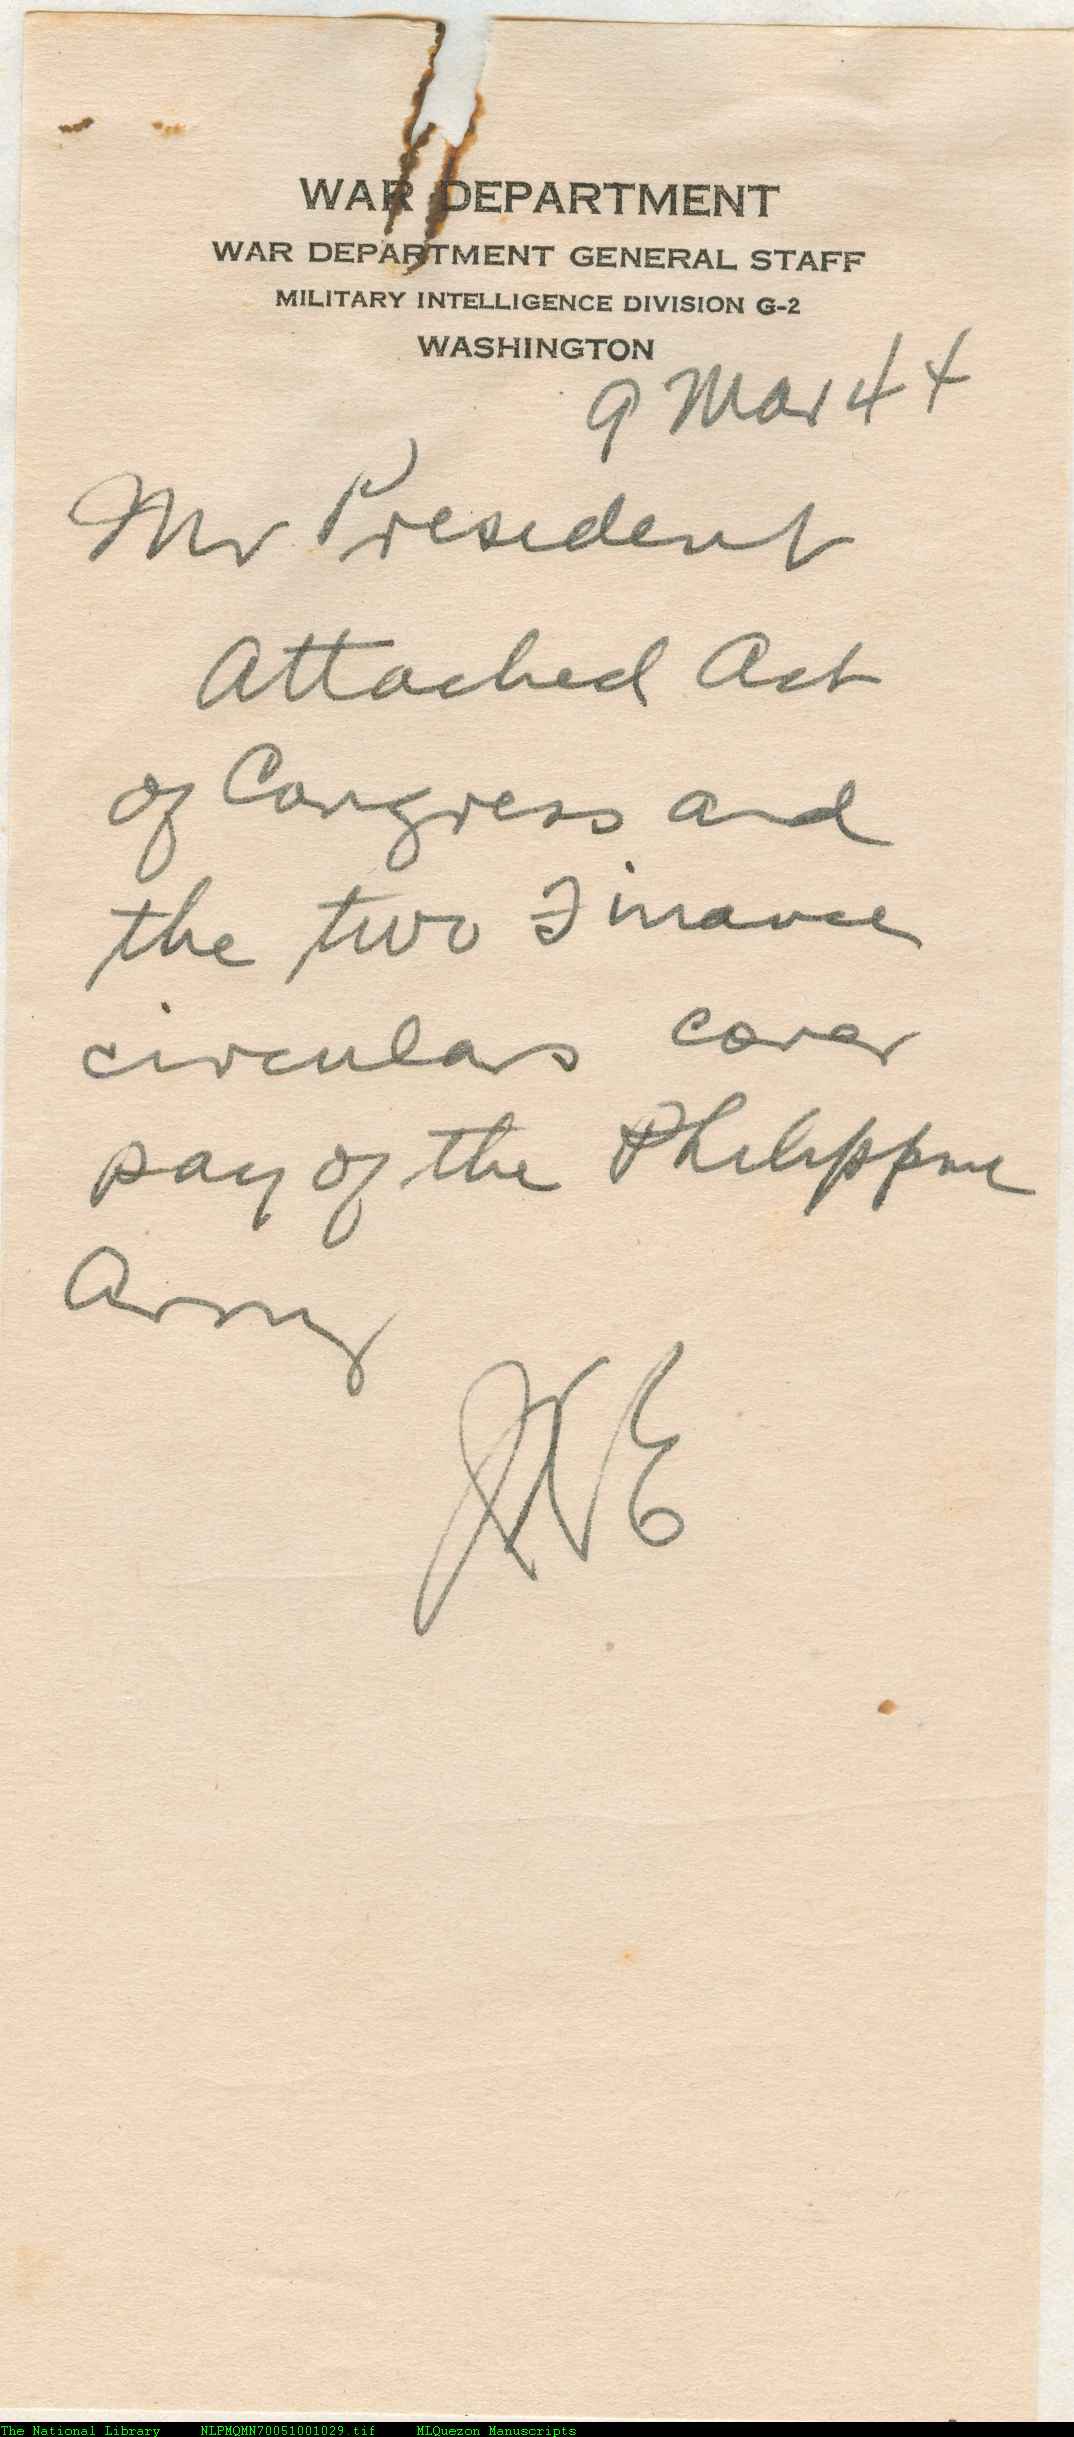 WAR DEPARTMENT
WAR DEPARTMENT GENERAL STAFF
MILITARY INTELLIGENCE DIVISION G-2
WASHINGTON
9 Mar 44
Mr President
Attached Act
of Congress and
the two Finance
circulars cover
pay of the Philippine
Army
The National Library NLPMQMN70051001029.tif MLQuezon Manuscripts